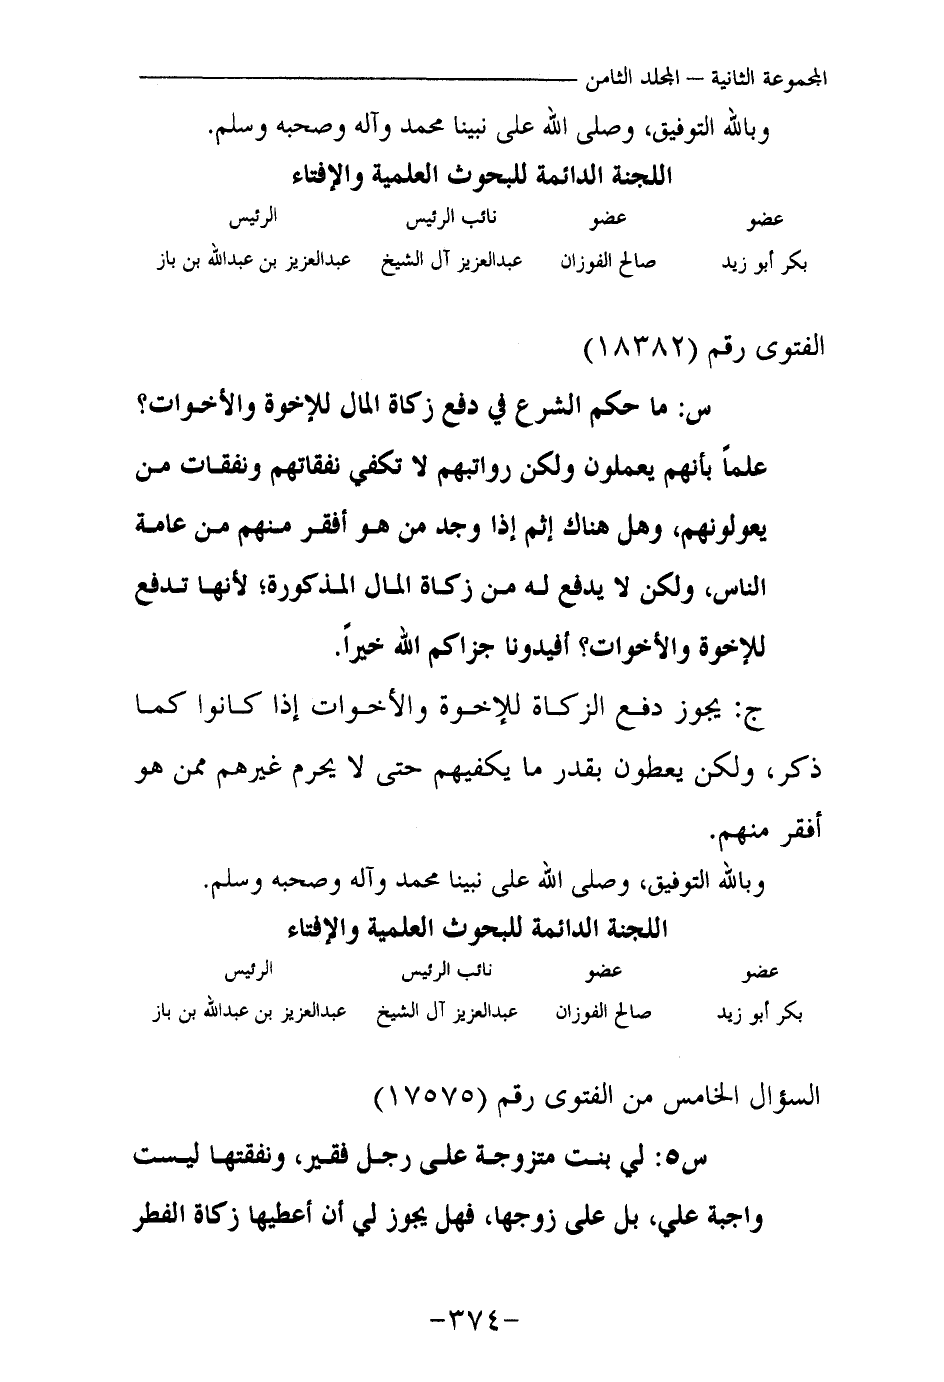 المجموعة الثانية – المجلد الثامن
وبالله التوفيق، وصلى الله على نبينا محمد وآله وصحبه وسلم.
اللجنة الدائمة للبحوث العلمية والإفتاء
عضو عضو نائب الرئيس الرئيس
بكر أبو زيد صالح الفوزان عبدالعزيز آل الشيخ عبدالعزيز بن عبدالله بن باز
الفتوى رقم (١٨٣٨٢)
س: ما حكم الشرع في دفع زكاة المال للإخوة والأخوات؟
علماً بأنهم يعملون ولكن رواتبهم لا تكفي نفقاتهم ونفقات من
يعولونهم، وهل هناك إثم إذا وجد من هو أفقر منهم من عامة
الناس، ولكن لا يدفع له من زكاة المال المذكورة؛ لأنها تدفع
للإخوة والأخوات؟ أفيدونا جزاكم الله خيراً.
ج: يجوز دفع الزكاة للإخوة والأخوات إذا كانوا كما
ذكر، ولكن يعطون بقدر ما يكفيهم حتى لا يحرم غيرهم ممن هو
أفقر منهم.
وبالله التوفيق، وصلى الله على نبينا محمد وآله وصحبه وسلم.
اللجنة الدائمة للبحوث العلمية والإفتاء
عضو عضو نائب الرئيس الرئيس
بكر أبو زيد صالح الفوزان عبدالعزيز آل الشيخ عبدالعزيز بن عبدالله بن باز
السؤال الخامس من الفتوى رقم (١٧٥٧٥)
س٥: لي بنت متزوجة على رجل فقير، ونفقتها ليست
واجبة علي، بل على زوجها، فهل يجوز لي أن أعطيها زكاة الفطر
-٣٧٤-